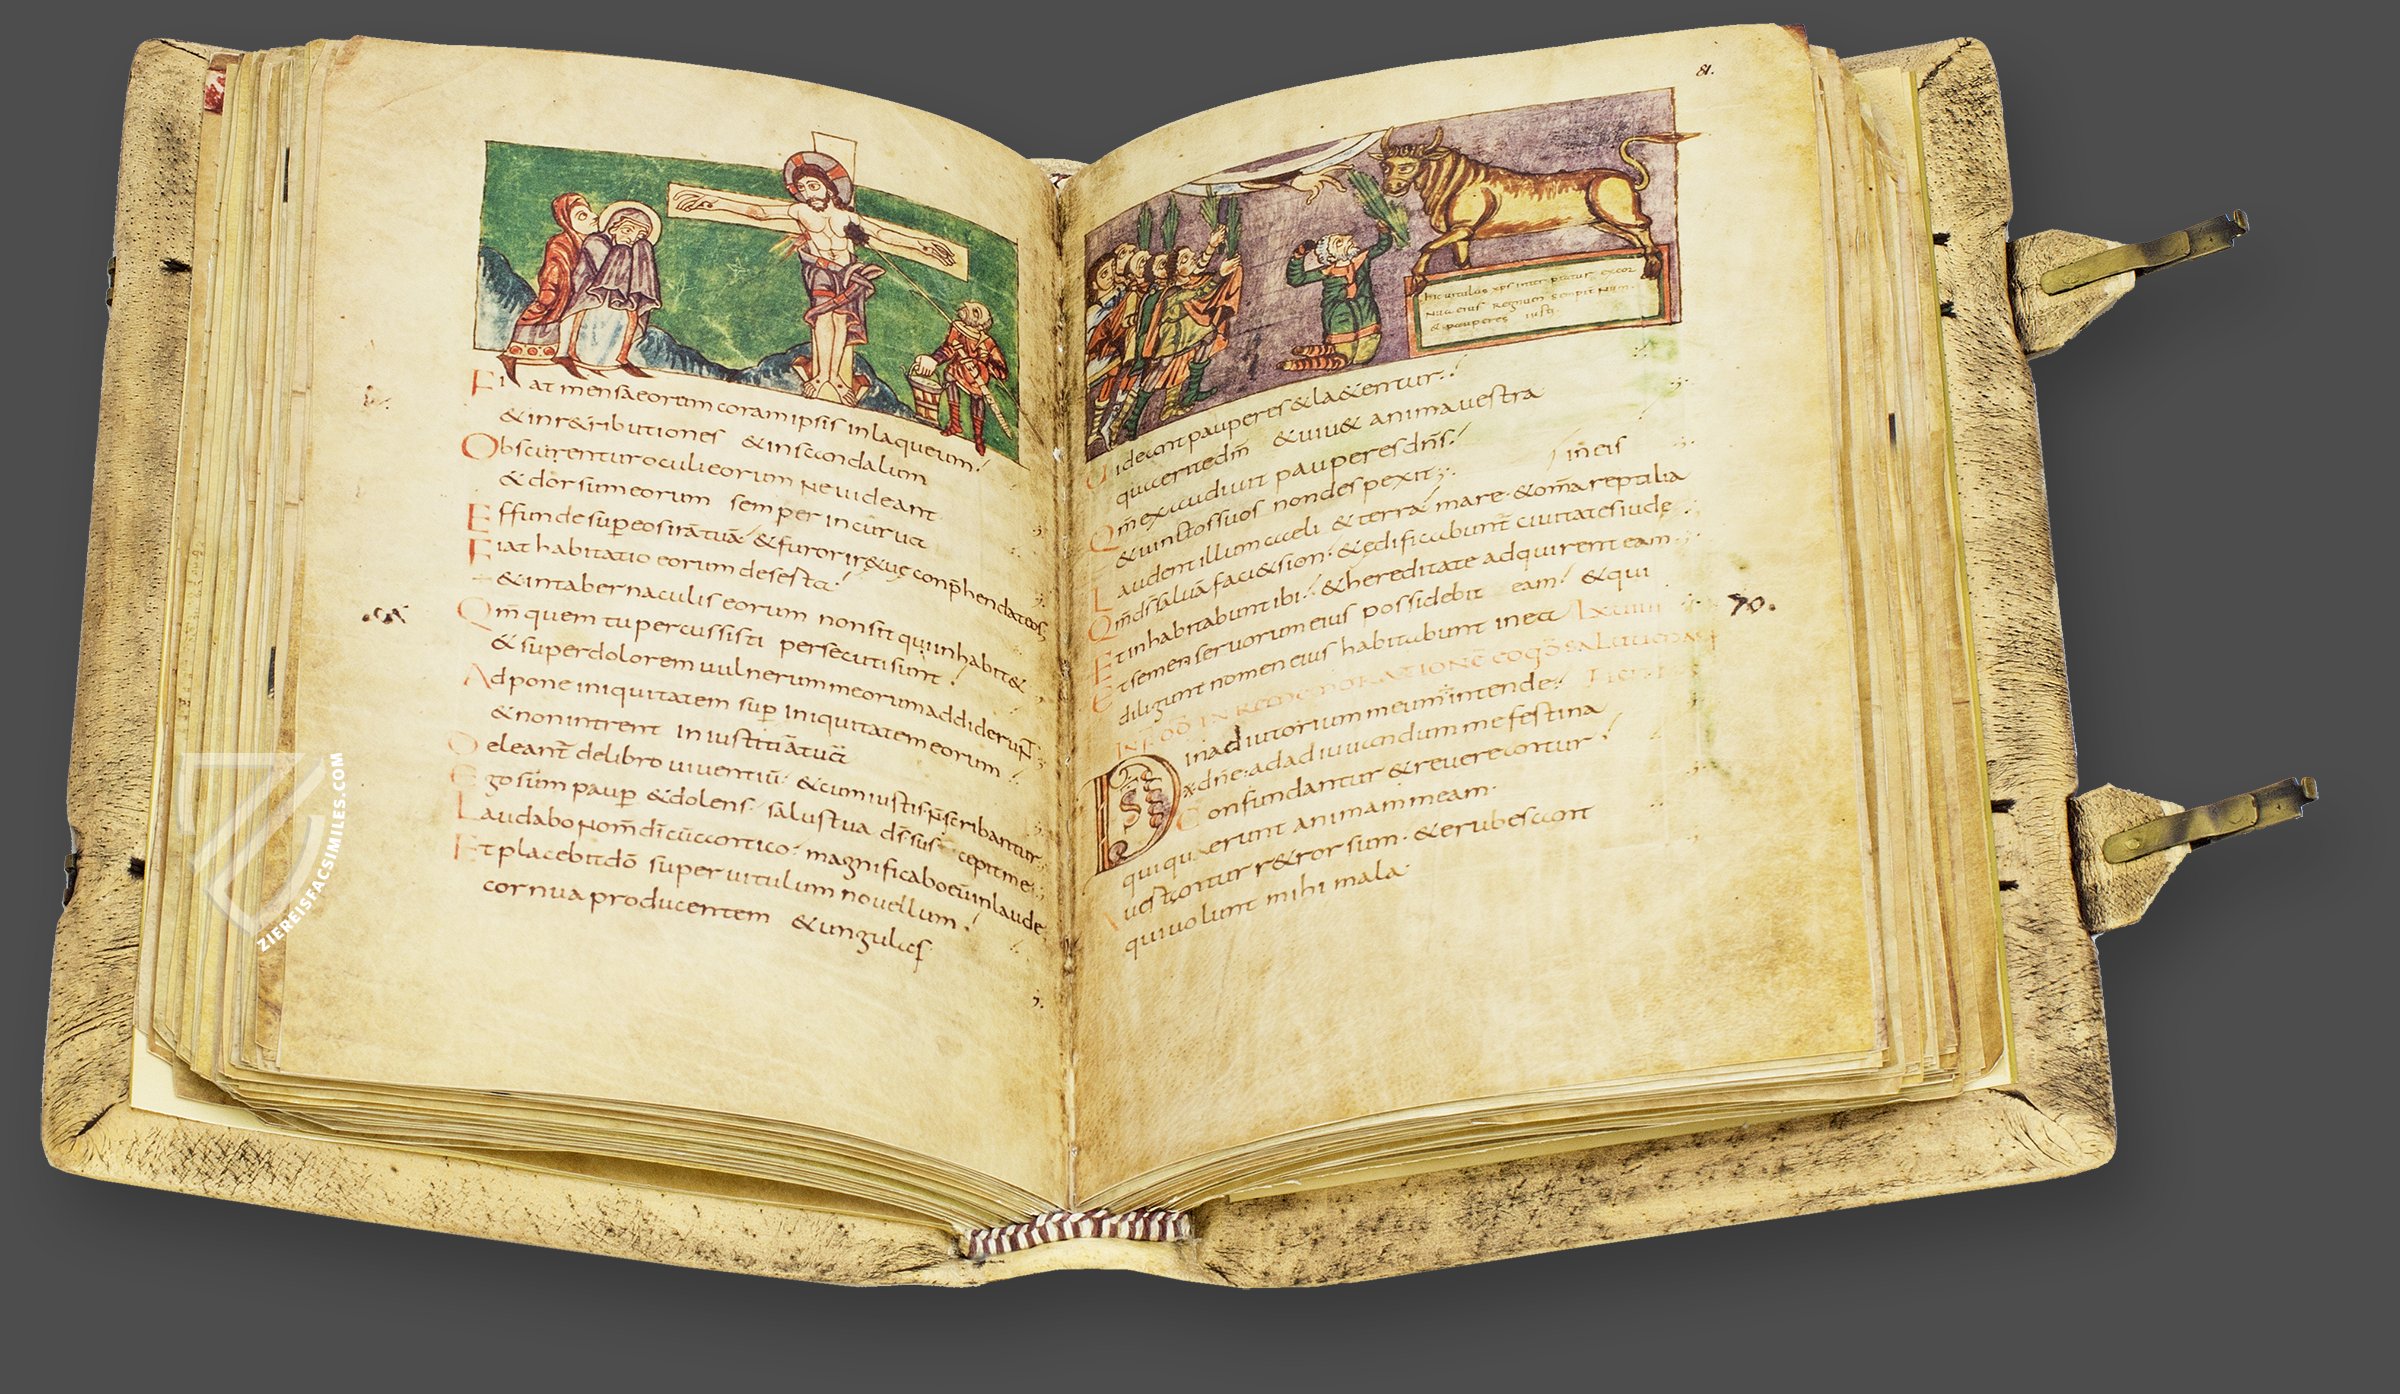 Fiat mensa eorum coram ipsis in laqueum
& in r&ributiones & in scandalum
Obscurentur oculi eorum ne uideant
& dorsum eorum semper incurua
Effunde sup eos irā tuā & furor irę tuę conp̄hendat eos
Fiat habitatio eorum deserta
& in tabernaculis eorum non sit qui inhabit&
Qm̄ quem tu percussisti persecuti sunt
& super dolorem uulnerum meorum addiderunt
Adpone iniquitatem sup iniquitatem eorum
& non intrent in iustitiā tuā
Deleant̄ de libro uiuentiū & cum iustis n̄ scribantur
Ego sum paup & dolens salus tua ds̄ suscepit me
Laudabo nom̄ dī cū cantico magnificabo eū in laude
Et placebit dō super uitulum nouellum
cornua producentem & ungulas
81.
Hic uitulus xps inter pr&atur
cornua eius regnum sempit
& pauperes iusti
Uideant pauperes & la&entur
quaerite dm̄ & uiu& anima uestra
Qm̄ exaudiuit pauperes dn̄s
& uinctos suos non despexit
in eis
Laudent illum caeli & terra mare & om̄a reptilia
Qm̄ ds̄ saluā faci& sion & ędificabunt ciuitates iudę
Et inhabitabunt ibi & hereditate adquirent eam
Et semen seruorum eius possidebit eam & qui
diligunt nomen eius habitabunt in ea
70.
Ds̄ in adiutorium meum intende
dn̄e ad adiuuandum me festina
Confundantur & reuereantur
qui quaerunt animam meam
Auertantur r&rorsum & erubescant
qui uolunt mihi mala
ZIEREISFACSIMILES.COM